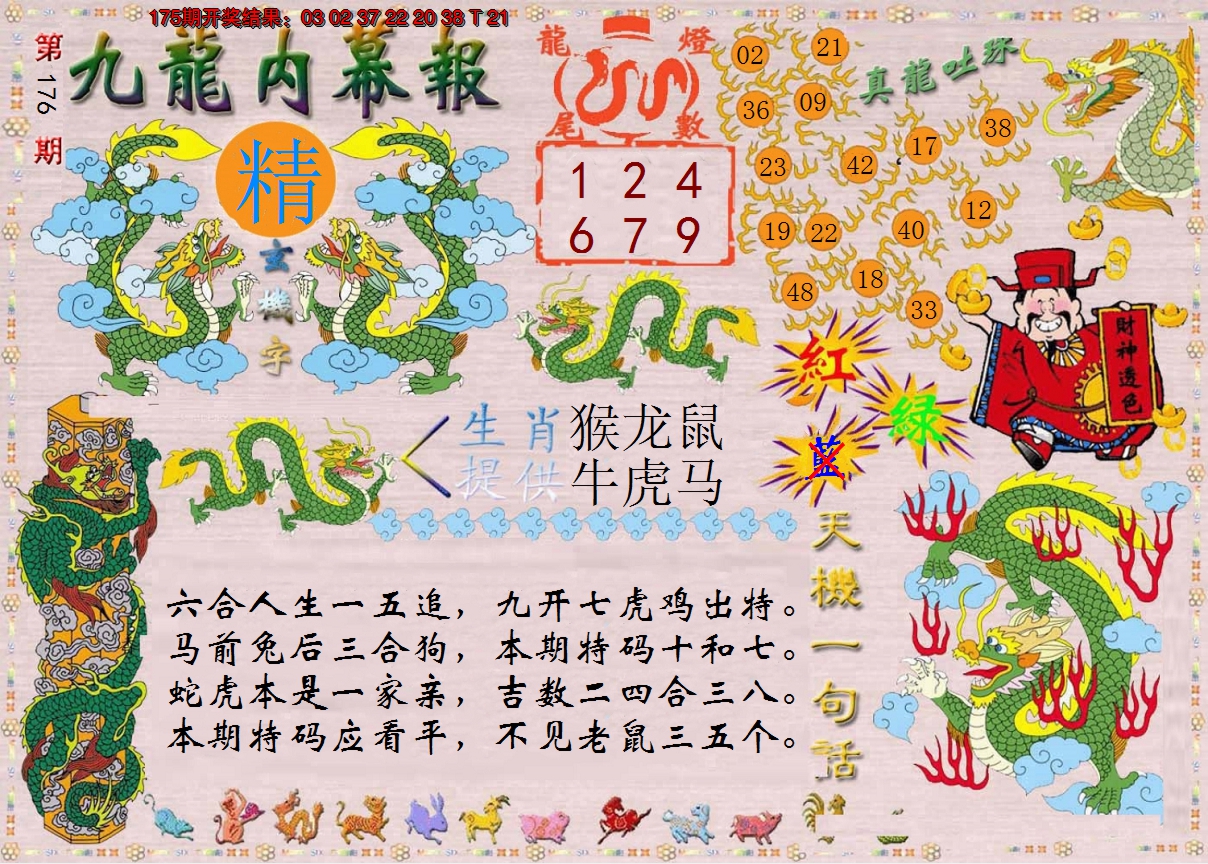 175期开奖结果：03 02 37 22 20 38 T 21
第176期
九龍内幕報
精
玄機字
龍燈
尾數
1 2 4
6 7 9
真龍吐珠
02 21
36 09
17 38
23 42
12
19 22 40
48 18
33
財神透色
紅
綠
藍
生肖 猴龙鼠
提供 牛虎马
天機一句話
六合人生一五追，九开七虎鸡出特。
马前兔后三合狗，本期特码十和七。
蛇虎本是一家亲，吉数二四合三八。
本期特码应看平，不见老鼠三五个。